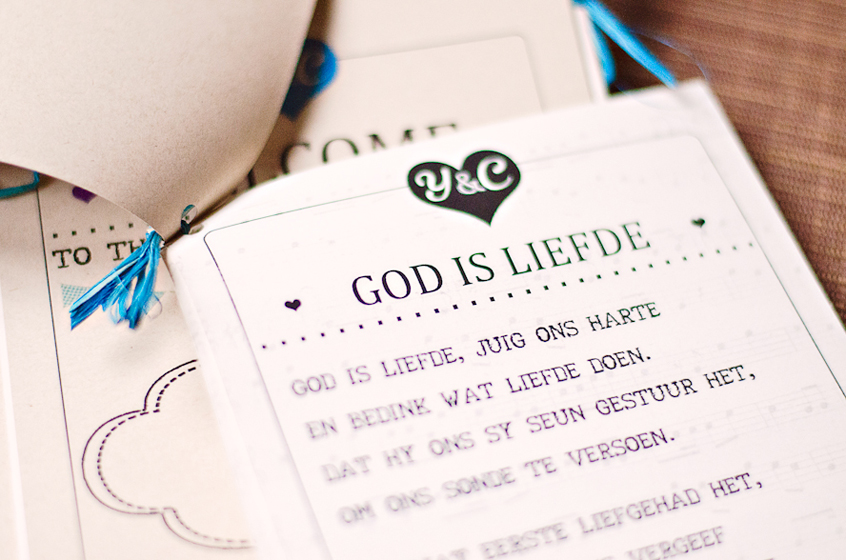 COME
TO TH
Y&C
GOD IS LIEFDE
GOD IS LIEFDE, JUIG ONS HARTE
EN BEDINK WAT LIEFDE DOEN.
DAT HY ONS SY SEUN GESTUUR HET,
OM ONS SONDE TE VERSOEN.
EERSTE LIEFGEHAD HET,
VERGEEF